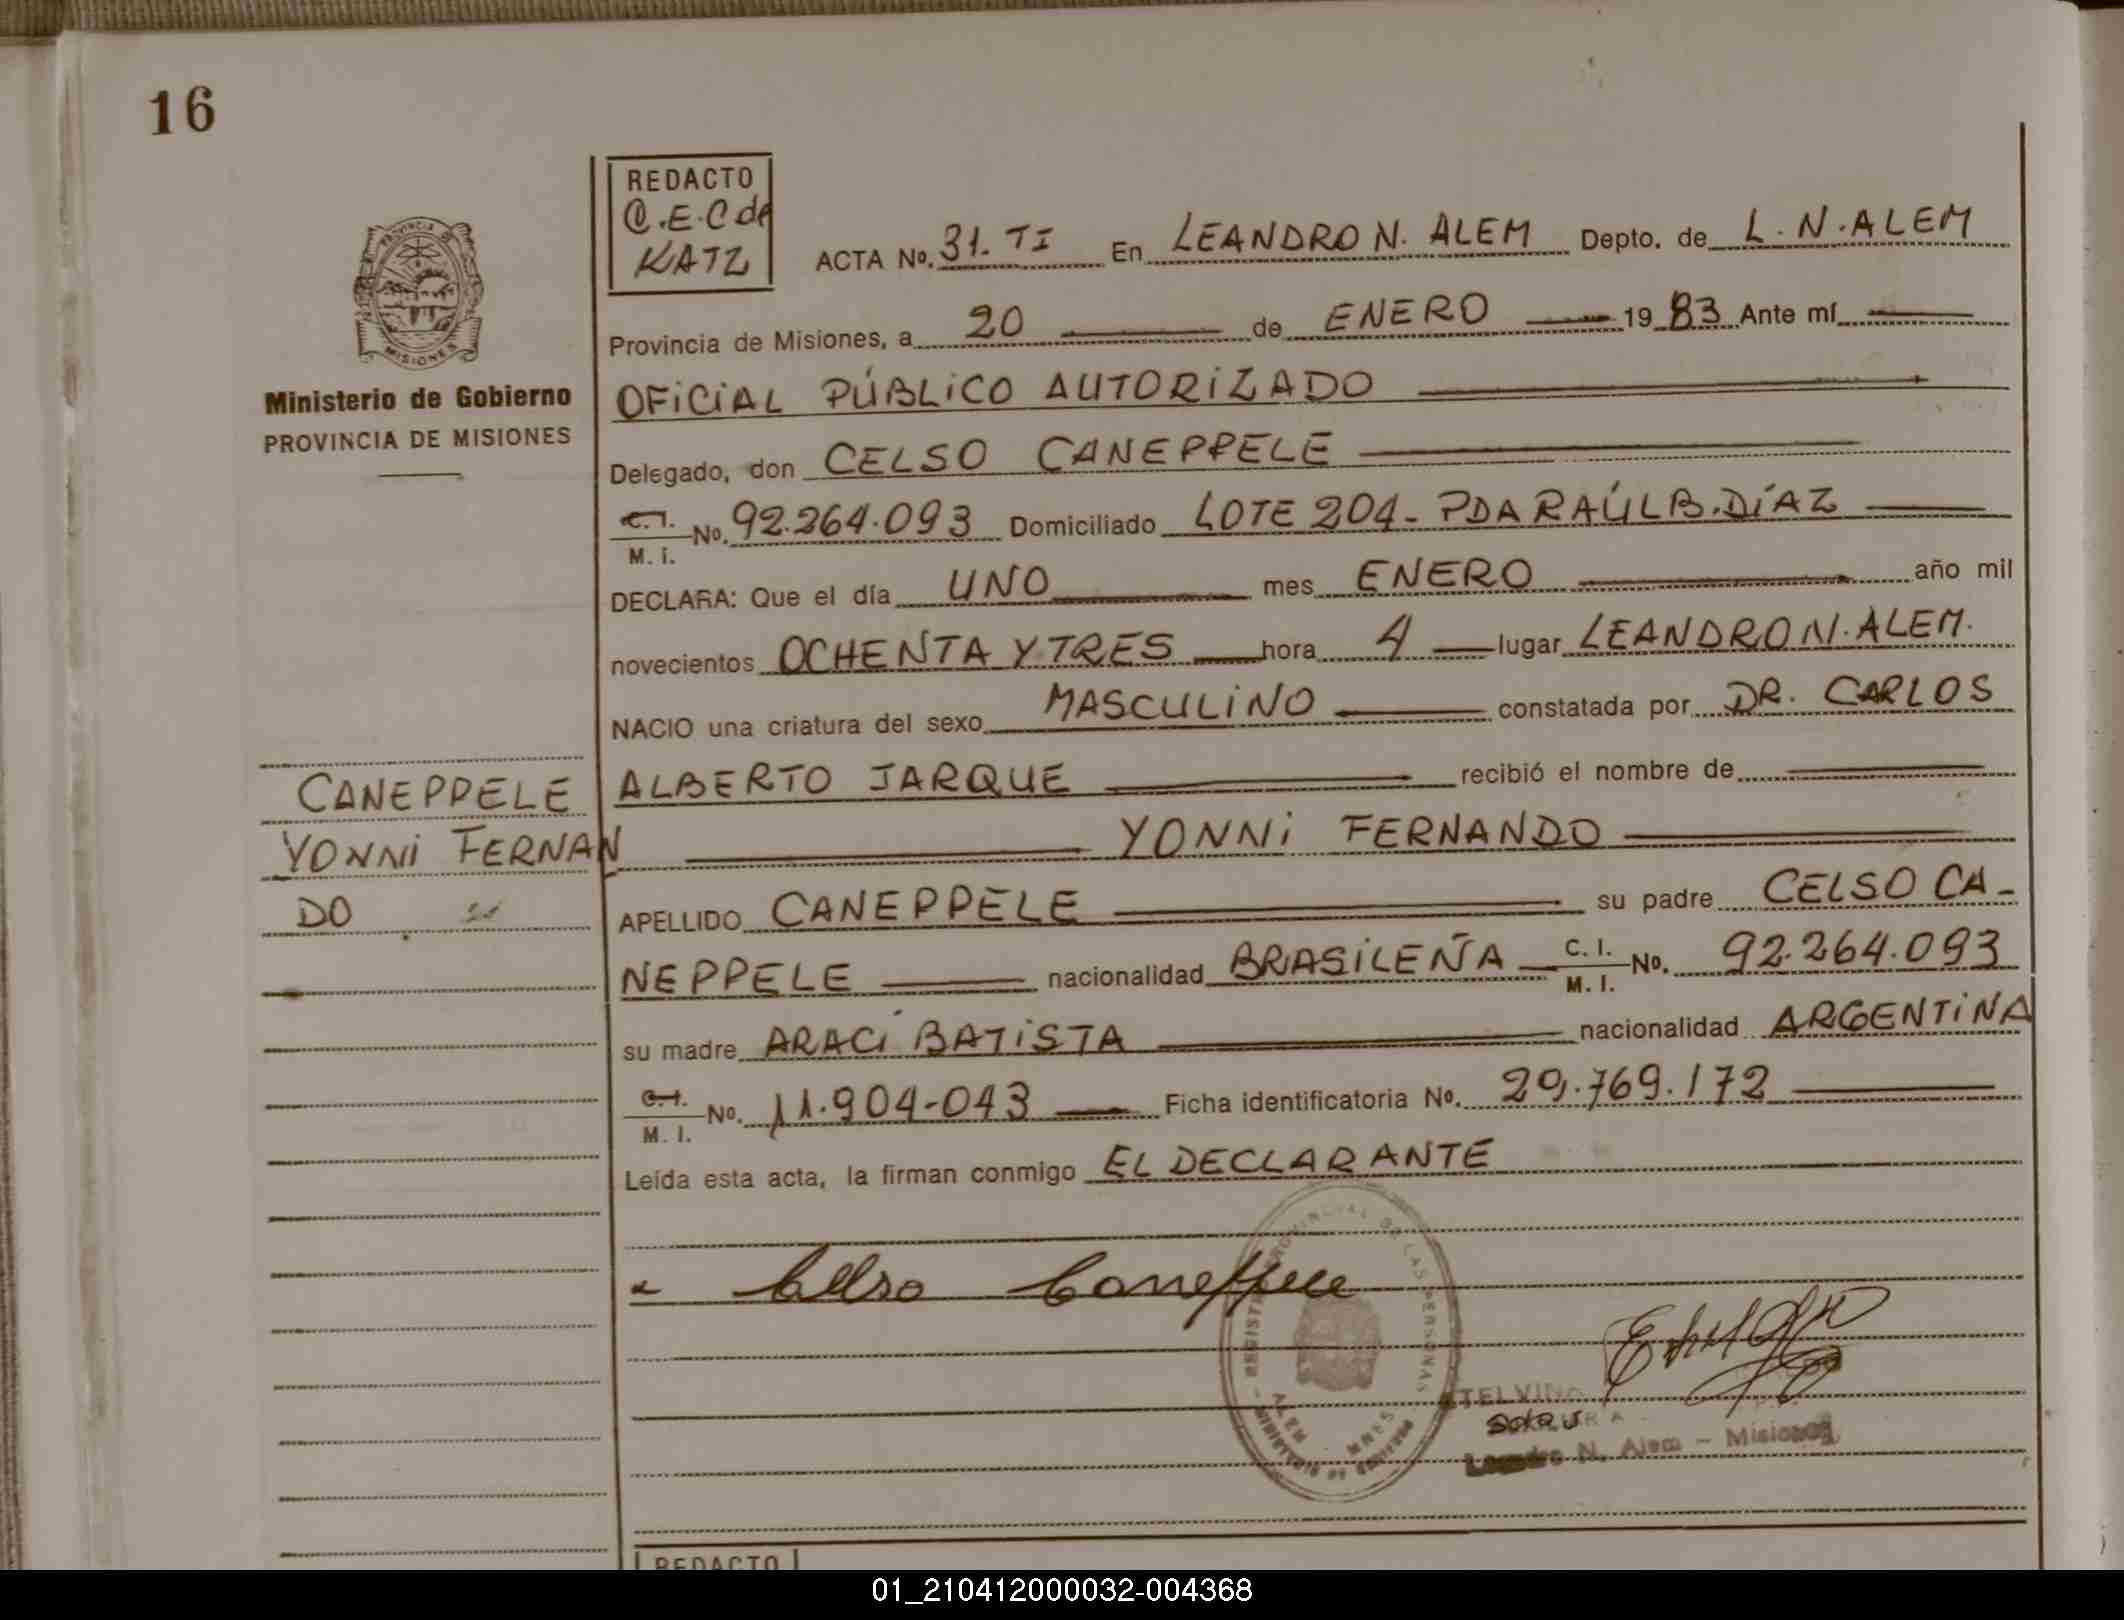 16
REDACTO
C.E.C de
KATZ
ACTA No. 31. TI En LEANDRO N. ALEM Depto. de L.N.ALEM
Provincia de Misiones, a 20 de ENERO 1983 Ante mí
OFICIAL PÚBLICO AUTORIZADO
Delegado, don CELSO CANEPPELE
C.I. M.I. No. 92.264.093 Domiciliado LOTE 204- PDA RAÚL B. DÍAZ
DECLARA: Que el día UNO mes ENERO año mil
novecientos OCHENTA Y TRES hora 4 lugar LEANDRO N. ALEM.
NACIO una criatura del sexo MASCULINO constatada por DR. CARLOS
ALBERTO JARQUE recibió el nombre de
YONNI FERNANDO
APELLIDO CANEPPELE su padre CELSO CA-
NEPPELE nacionalidad BRASILEÑA C.I. M.I. No. 92.264.093
su madre ARACÍ BATISTA nacionalidad ARGENTINA
C.I. M.I. No. 11.904-043 Ficha identificatoria No. 29.769.172
Leída esta acta, la firman conmigo EL DECLARANTE
Celso Caneppele
PROVINCIA DE
MISIONES
Ministerio de Gobierno
PROVINCIA DE MISIONES
CANEPPELE
YONNI FERNAN
DO
REGISTRO PROVINCIAL DE LAS PERSONAS
MINISTERIO DE GOBIERNO
ALEM - MNES
Leandro N. Alem - Misiones
REDACTO
01_210412000032-004368